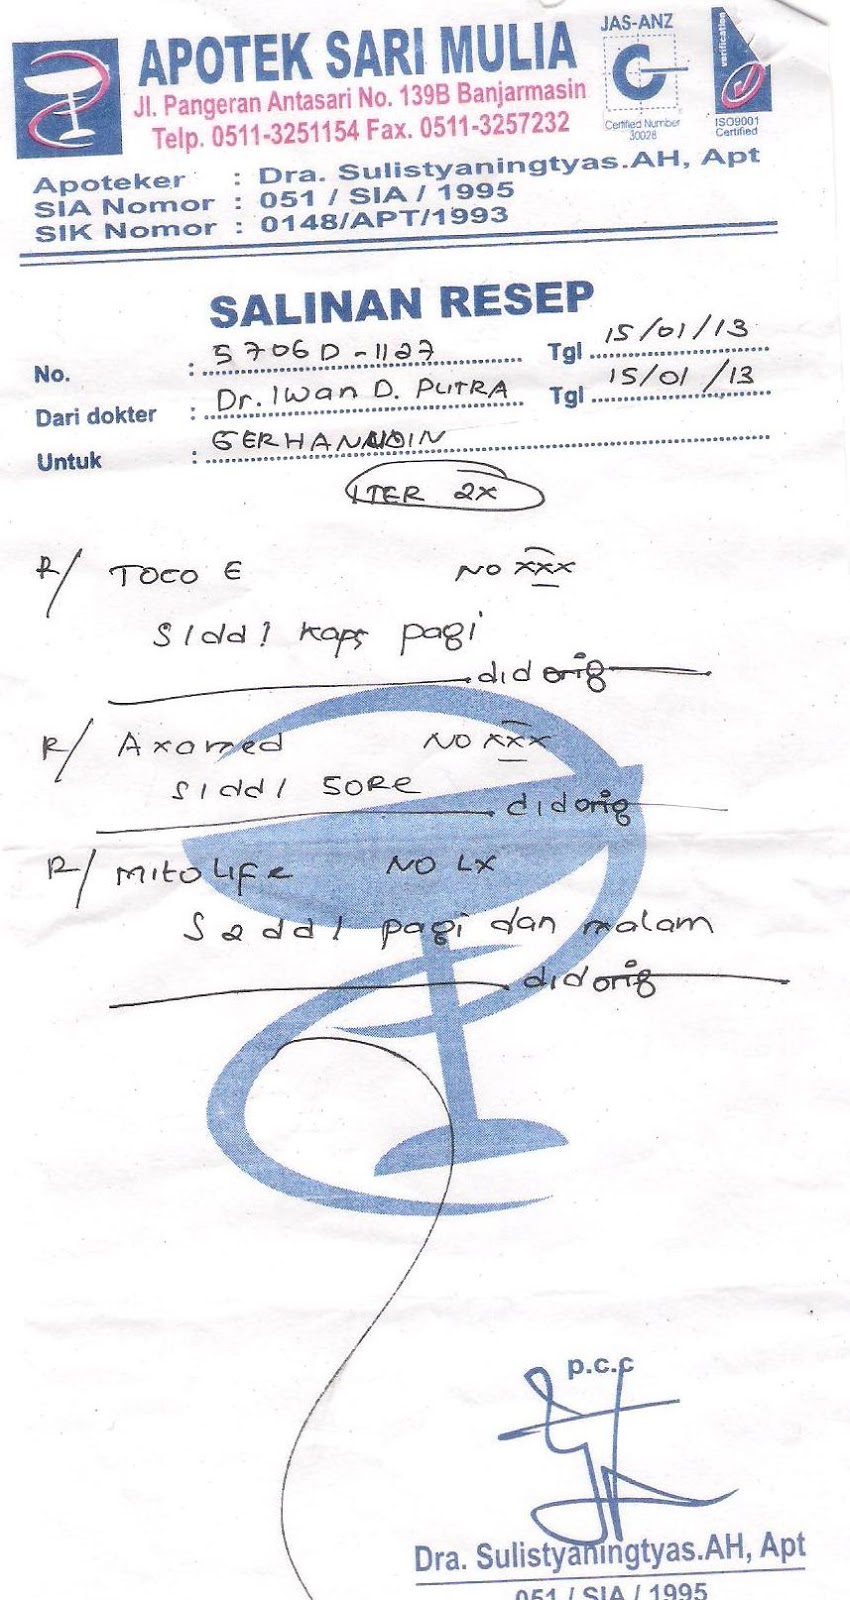 APOTEK SARI MULIA
Jl. Pangeran Antasari No. 139B Banjarmasin
Telp. 0511-3251154 Fax. 0511-3257232
JAS-ANZ
Certified Number
30028
verification
ISO9001
Certified
Apoteker : Dra. Sulistyaningtyas.AH, Apt
SIA Nomor : 051 / SIA / 1995
SIK Nomor : 0148/APT/1993
SALINAN RESEP
No. : 5706D-1127 Tgl 15/01/13
Dari dokter : Dr. Iwan D. PUTRA Tgl 15/01/13
Untuk :
ITER 2X
R/ TOCO E NO XXX
S1dd1 kaps pagi
did orig
R/ Axomed NO XXX
S1dd1 SORE
did orig
R/ MitoLife NO LX
S2dd1 pagi dan malam
did orig
p.c.c
Dra. Sulistyaningtyas.AH, Apt
051 / SIA / 1995